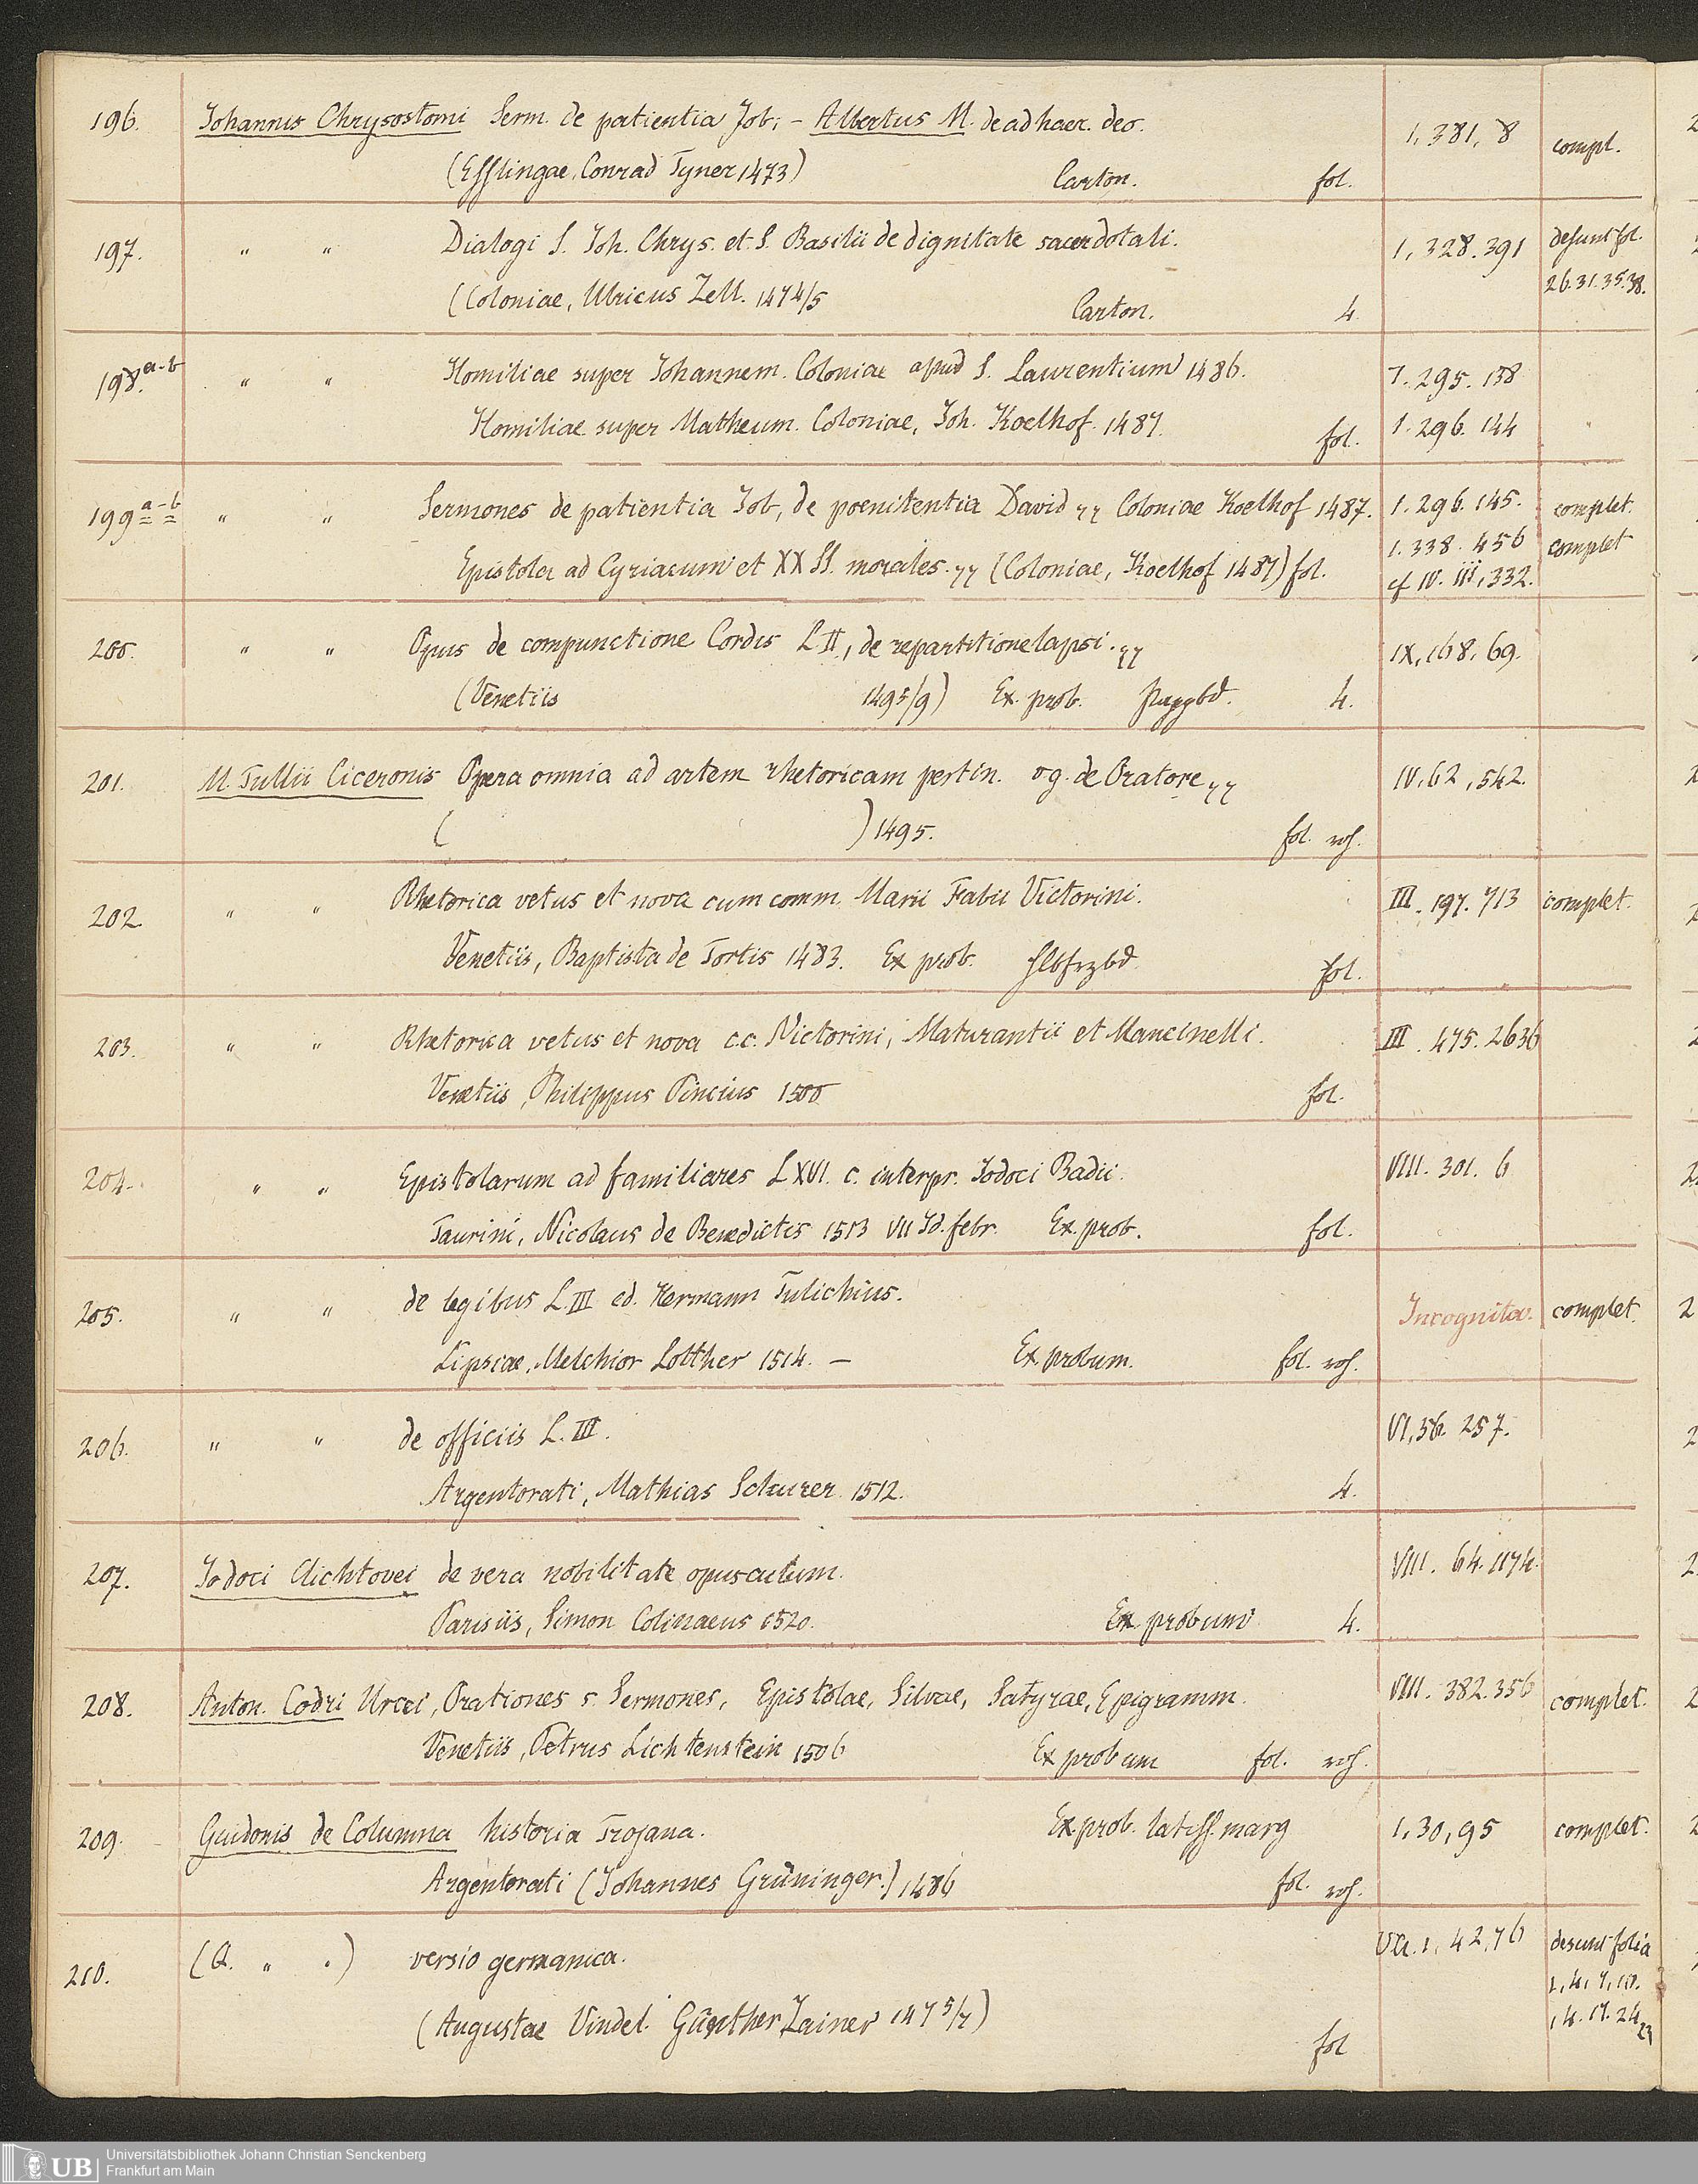 196. Johannis Chrysostomi Serm. de patientia Job; – Albertus M. de adhaer. deo. 1, 381, 8 compl.
(Esslingae, Conrad Fyner 1473) Carton. fol.
197. " " Dialogi S. Joh. Chrys. et S. Basilii de dignitate sacerdotali. 1, 328. 391 desunt fol.
26. 31. 35. 38.
(Coloniae, Ulricus Zell. 1474/5 Carton. 4
198. a-b " " Homiliae super Johannem. Coloniae apud S. Laurentium 1486. 1. 295. 138
Homiliae super Matheum. Coloniae, Joh. Koelhof. 1487. fol. 1. 296. 144
199 a-b " " Sermones de patientia Job, de poenitentia David Coloniae Koelhof 1487. 1. 296. 145. complet.
1. 338. 456 complet
Epistola ad Cyriacum et XX SS. morales. (Coloniae, Koelhof 1487) fol. cf IV. iii, 332.
200. " " Opus de compunctione Cordis L II, de repartitione lapsi. IX, 168, 69.
(Venetiis 1495/9) Ex. prob. 4.
201. M. Tullii Ciceronis Opera omnia ad artem rhetoricam pertin. de Oratore IV, 62, 542.
( ) 1495. fol. roh.
202. " " Rhetorica vetus et nova cum comm. Marii Fabii Victorini. III. 197. 713 complet.
Venetiis, Baptista de Tortis 1483. Ex prob. fol.
203. " " Rhetorica vetus et nova c.c. Victorini, Maturantii et Mancinelli. III. 475. 2636
Venetiis, Philippus Pincius 1500 fol.
204. " " Epistolarum ad familiares L XVI. c. interpr. Jodoci Badii. VIII. 301. 6
Taurini, Nicolaus de Benedictis 1513 VII Id. febr. Ex. prob. fol.
205. " " de legibus L. III ed. Hermann Tulichius. Incognita. complet.
Lipsiae, Melchior Lotther 1514. – Ex. probum. fol. roh.
206. " " de officiis L. III. VI, 56. 257.
Argentorati, Mathias Schurer 1512. 4.
207. Jodoci Clichtovei de vera nobilitate opusculum. VIII. 64. 1174.
Parisiis, Simon Colinaeus 1520. Ex. probum 4.
208. Anton. Codri Urcei, Orationes s. Sermones, Epistolae, Silvae, Satyrae, Epigramm. VIII. 382. 356 complet.
Venetiis, Petrus Lichtenstein 1506 Ex probum fol. roh.
209. Guidonis de Columna historia Trojana. Ex prob. latiss. marg 1, 30, 95 complet.
Argentorati (Johannes Grüninger.) 1486 fol. roh.
210. (G. " .) versio germanica. 1, 42, 76 desunt folia
1, 4, 7, 10.
14. 17. 24, 29
(Augustae Vindel. Günther Zainer 1475/7) fol
UB Universitätsbibliothek Johann Christian Senckenberg
Frankfurt am Main